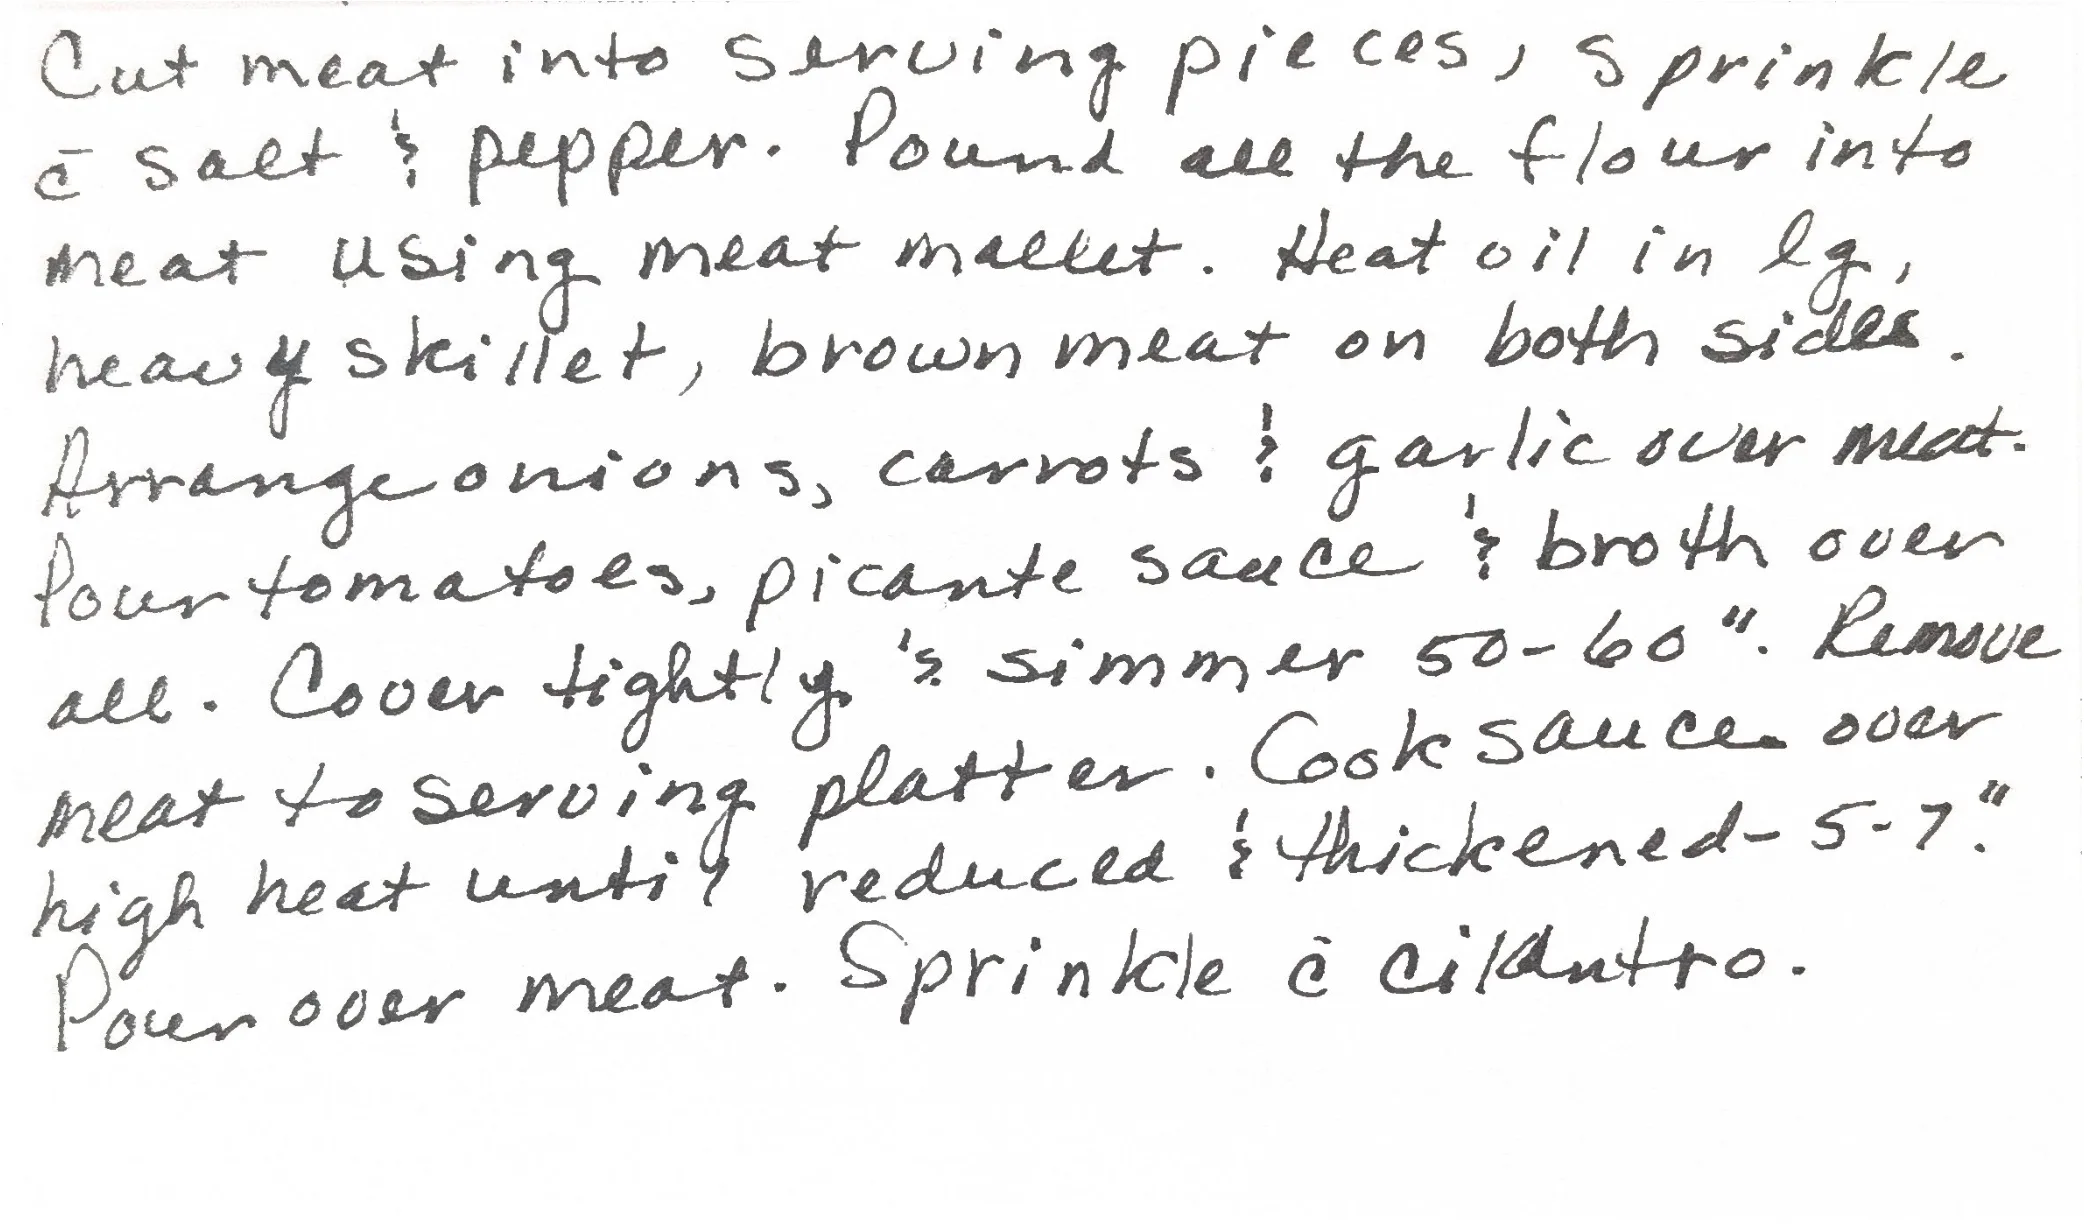 Cut meat into serving pieces, sprinkle
c̄ salt & pepper. Pound all the flour into
meat using meat mallet. Heat oil in lg,
heavy skillet, brown meat on both sides.
Arrange onions, carrots & garlic over meat.
Pour tomatoes, picante sauce & broth over
all. Cover tightly & simmer 50-60". Remove
meat to serving platter. Cook sauce over
high heat until reduced & thickened - 5-7".
Pour over meat. Sprinkle c̄ cilantro.